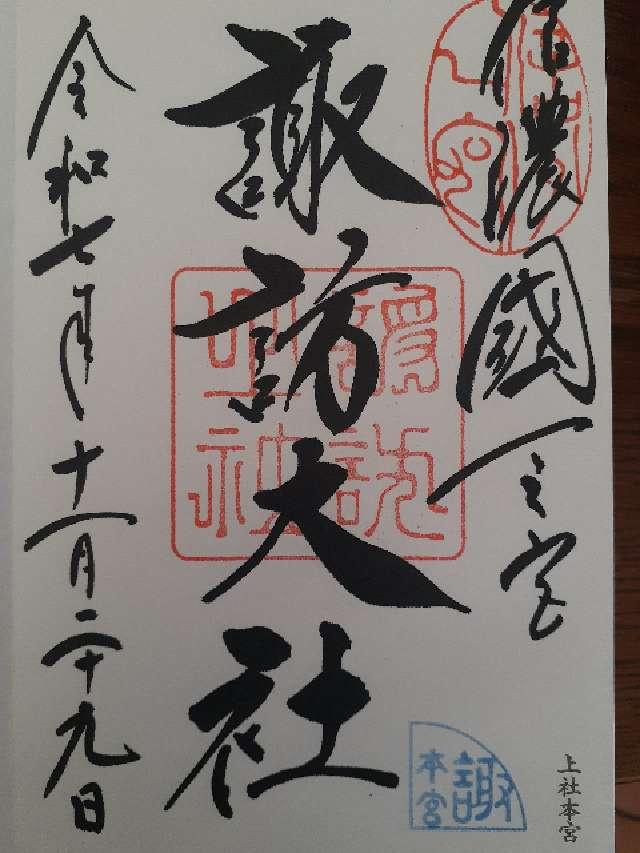 信濃國一之宮
諏訪大社
令和七年十一月二十九日
諏
本宮
上社本宮